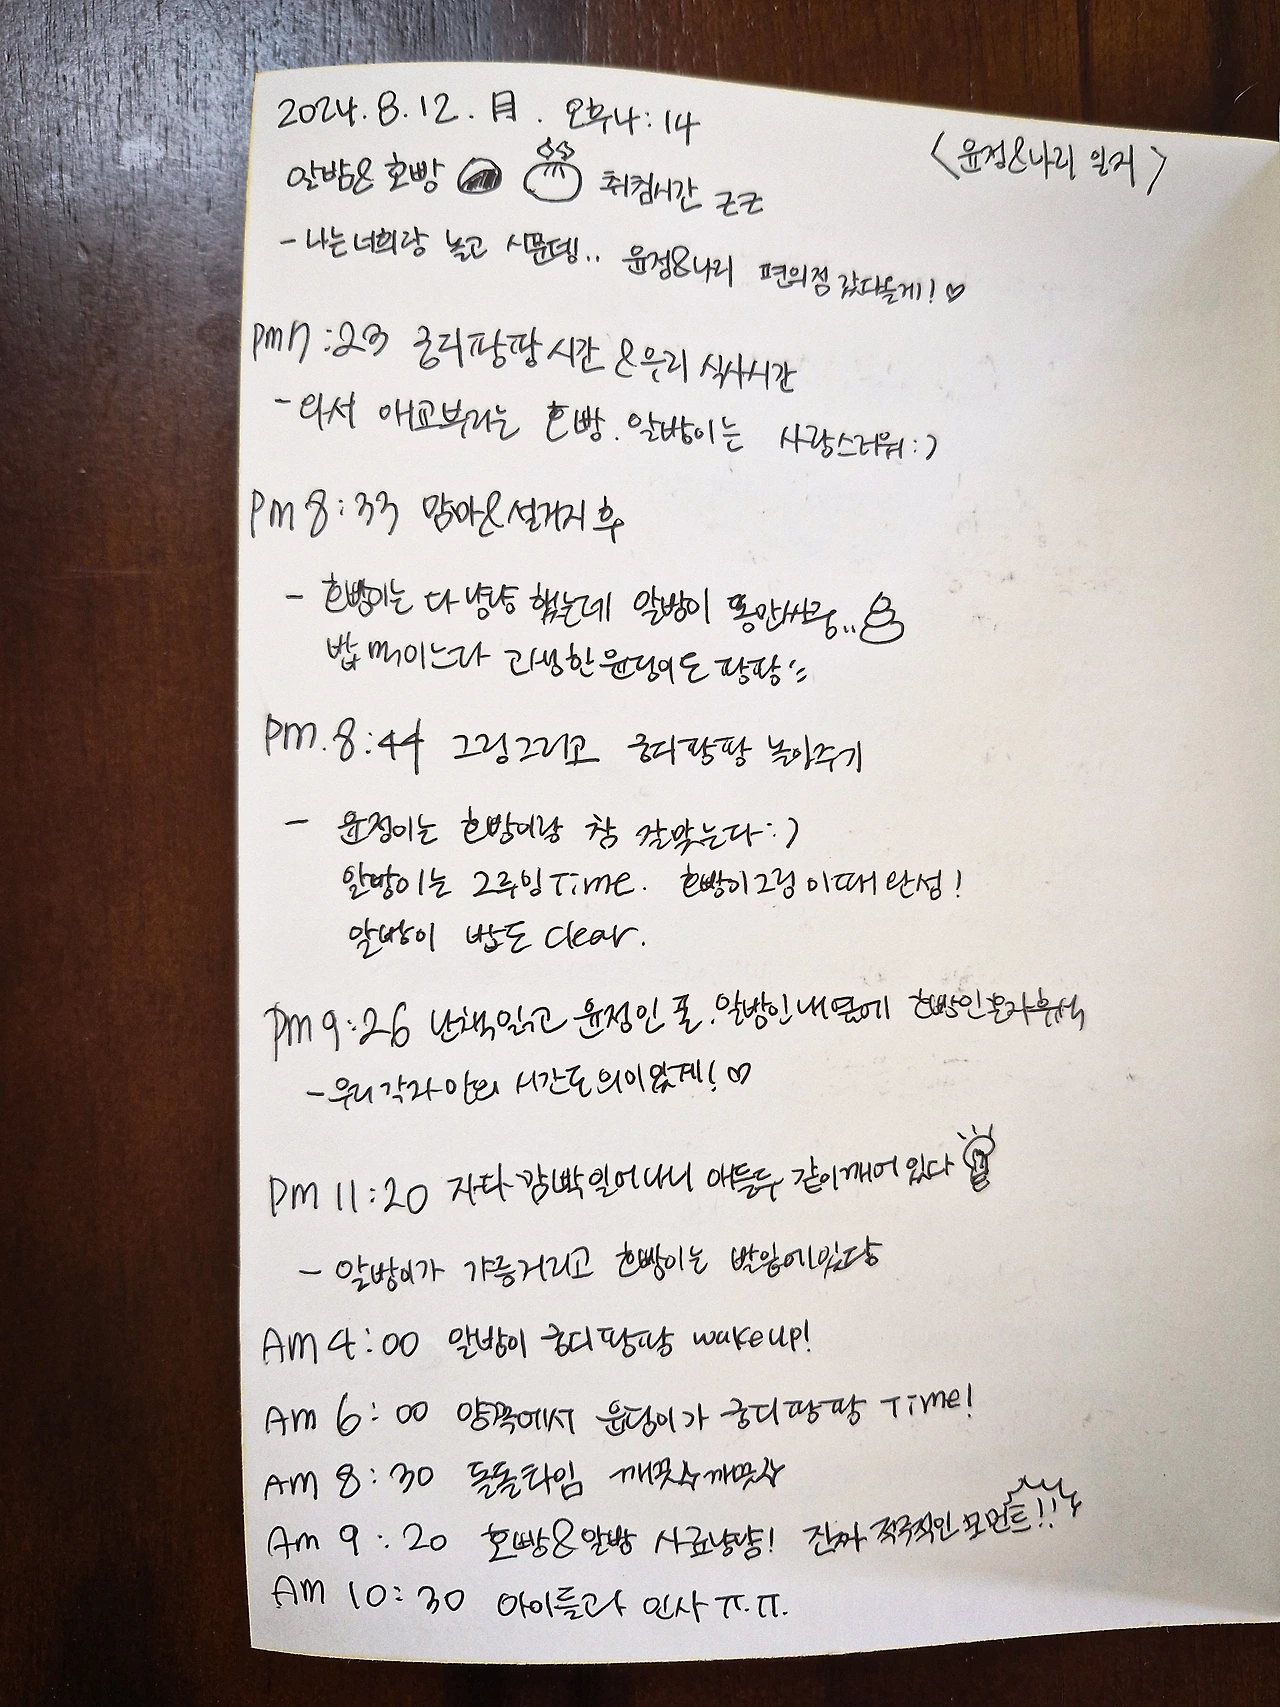 2024.8.12.月. 오후4:14
<윤정&나리 일지>
알밤& 호빵 취침시간 zz
- 나는 너희랑 놀고 시픈뎅.. 윤정&나리 편의점 갔다올게! ♡
PM 7:23 궁디팡팡 시간 & 우리 식사시간
- 와서 애교부리는 호빵. 알밤이는 사랑스러워:)
PM 8:33 맘마&설거지 후
- 호빵이는 다 냥냥 했는데 알밤이 똥만싸쿵..
밥 먹이느라 고생한 윤덩이도 팡팡
PM. 8:44 그림그리고 궁디팡팡 놀아주기
- 윤정이는 호빵이랑 참 잘맞는다:)
알밤이는 그루밍 Time. 호빵이그림 이때 완성!
알밤이 밥도 clear.
PM 9:26 난 책읽고 윤정인 폰. 알밤인 내옆에 호빵인 혼자휴식
- 우리 각자만의 시간도 의미있게! ♡
PM 11:20 자다 깜빡 일어나니 애들두 같이깨어 있다
- 알밤이가 갸릉거리고 호빵이는 발밑에있당
AM 4:00 알밤이 궁디팡팡 wake up!
AM 6:00 양쪽에서 윤덩이가 궁디팡팡 Time!
AM 8:30 돌돌타임 깨끗슈깨끗슈
AM 9:20 호빵&알밤 사료냥냠! 진짜 적극적인 모먼트!!
AM 10:30 아이들과 인사 ㅠ.ㅠ.